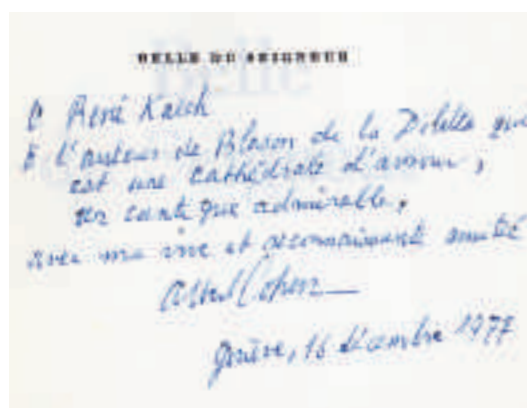 BELLE DU SEIGNEUR
à René
à l'auteur de Blason de la qui
est une cathédrale d'amour,
un cantique admirable,
avec ma vive et reconnaissante amitié
Albert Cohen
Genève, 16 décembre 1977